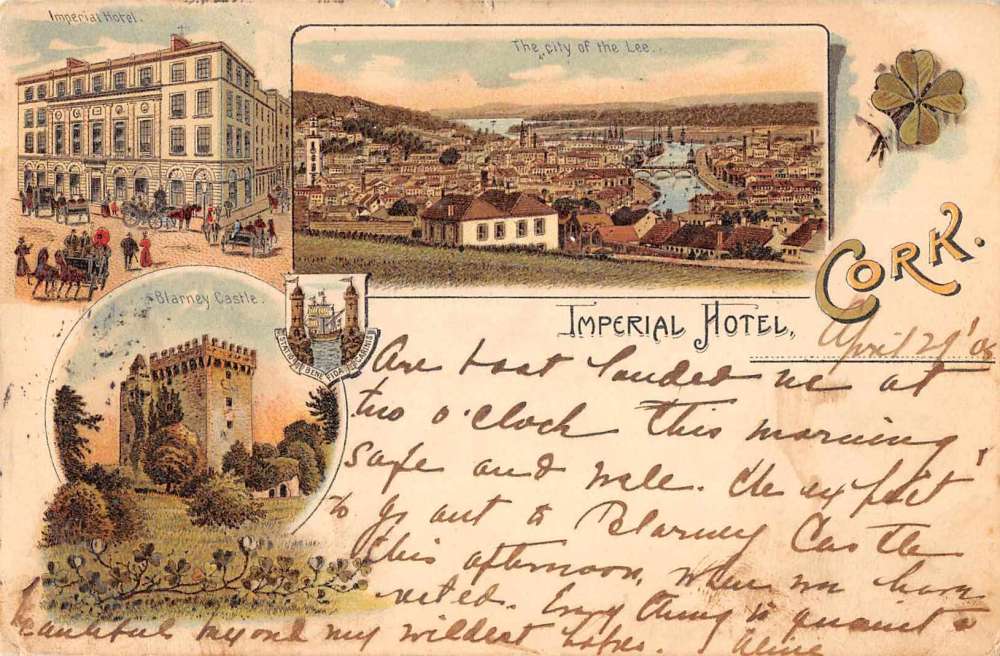 Imperial Hotel.
The city of the Lee.
Blarney Castle.
STATIO BENE FIDA CARINIS
CORK.
IMPERIAL HOTEL,
April 29'
Our boat landed us at
two o'clock this morning
safe and well. We expect
to go out to Blarney Castle
this afternoon, when we have
rested. Every thing is quaint &
beautiful beyond my wildest hopes. Aline